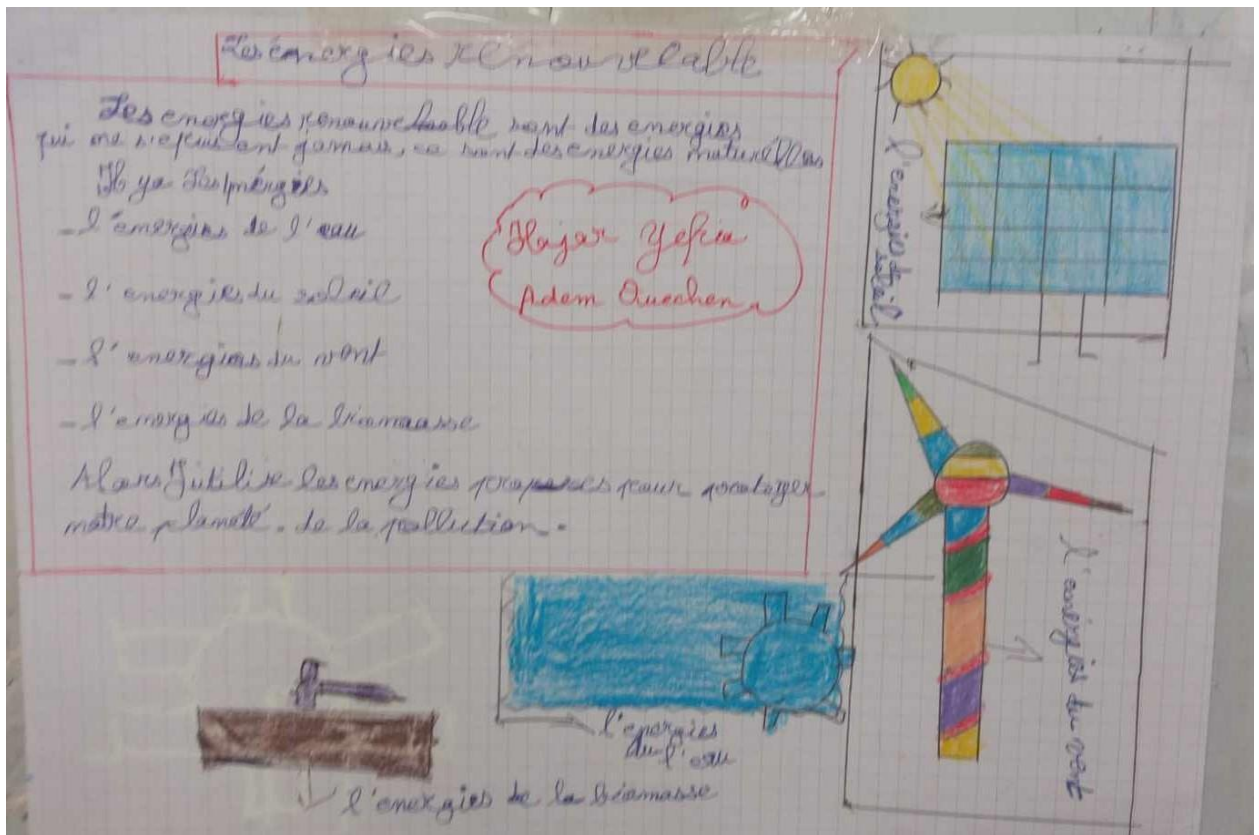 Les énergies renouvelable
Les energies renouvelable sont des energies
qui ne s'epuisent jamais, ce sont des energies naturélles
Il ya les énérgies
- l'énergies de l'eau
- l'energies du soleil
- l'energies du vent
- l'energies de la biomaasse
Alors J'utilise les energies propores pour protoger
notre planété. de la pollution.
Hajar Yefia
Adam
l'energies du soleil
l'enérgies du vent
l'energies
du l'eau
l'energies de la biamasse